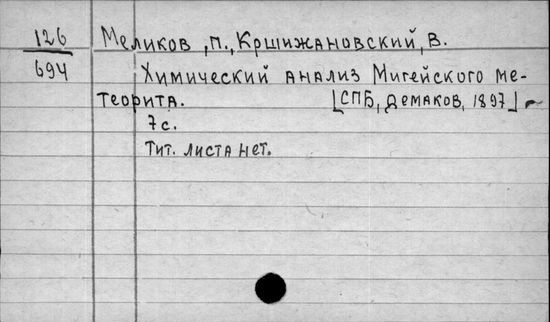 126 Меликов, П., Кршижановский, В.
694 Химический анализ Мигейского ме-
теорита. [СПБ, Демаков, 1897]
7 с.
Тит. листа нет.